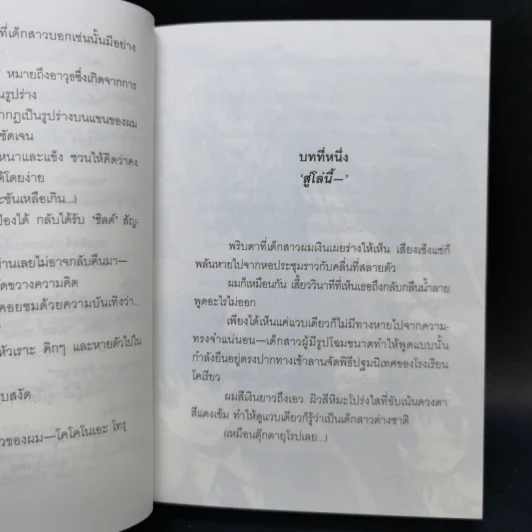 ที่เด็กสาวบอกเช่นนั้นมีอย่าง
หมายถึงอาวุธซึ่งเกิดจากการ
นรูปร่าง
ากฏเป็นรูปร่างบนแขนของผม
ชัดเจน
หนาและแข็ง ชวนให้คิดว่าคง
ด้โดยง่าย
ะชันเหลือเกิน...)
ป้องได้ กลับได้รับ ‘ชิลด์’ สัญ-
่านเลยไม่อาจกลับคืนมา—
ัดขวางความคิด
คอยชมด้วยความบันเทิงว่า...
หัวเราะ คิกๆ และหายตัวไปใน
บสงัด
วของผม—โคโคโนเอะ โทรุ
บทที่หนึ่ง
‘สู่โลนี้—’
พริบตาที่เด็กสาวผมเงินเผยร่างให้เห็น เสียงเซ็งแซ่ก็
พลันหายไปจากหอประชุมราวกับคลื่นที่สลายตัว
ผมก็เหมือนกัน เสี้ยววินาทีที่เห็นเธอถึงกลับกลืนน้ำลาย
พูดอะไรไม่ออก
เพียงได้เห็นแค่แวบเดียวก็ไม่มีทางหายไปจากความ-
ทรงจำแน่นอน—เด็กสาวผู้มีรูปโฉมขนาดทำให้พูดแบบนั้น
กำลังยืนอยู่ตรงปากทางเข้าลานจัดพิธีปฐมนิเทศของโรงเรียน
โคเรียว
ผมสีเงินยาวถึงเอว ผิวสีหิมะโปร่งใสที่ขับเน้นดวงตา
สีแดงเข้ม ทำให้ดูแวบเดียวก็รู้ว่าเป็นเด็กสาวต่างชาติ
(เหมือนตุ๊กตายุโรปเลย...)